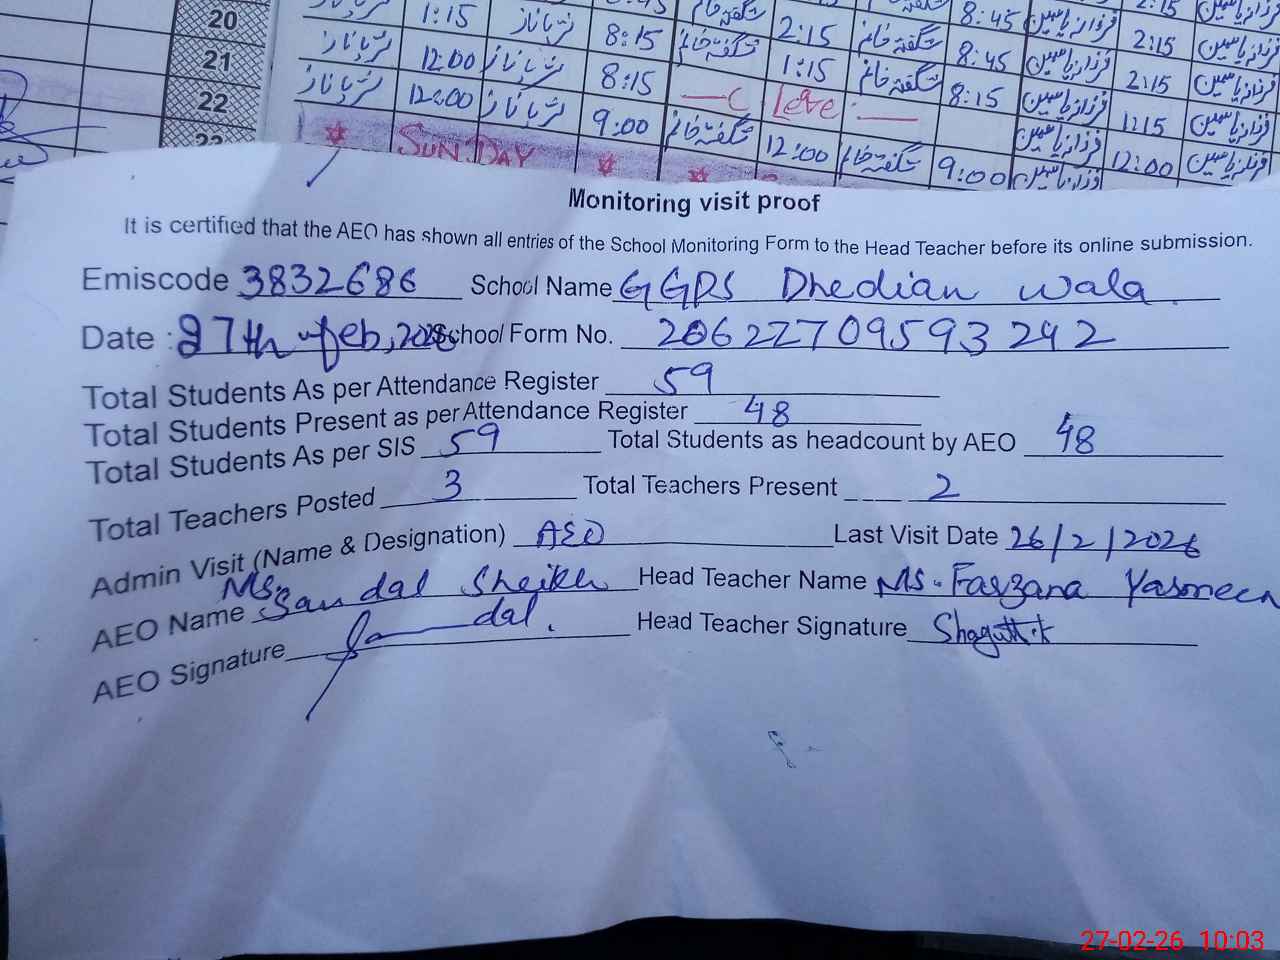 20 1:15 نازش 8:15 شگفتہ خانم 2:15 شگفتہ خانم 8:45 فرزانہ یاسمین 2:15 فرزانہ یاسمین
21 12:00 8:15 شگفتہ خانم 1:15 شگفتہ خانم 8:45 فرزانہ یاسمین 2:15 فرزانہ یاسمین
22 12:00 9:00 شگفتہ خانم Leave 8:15 فرزانہ یاسمین 1:15 فرزانہ یاسمین
23 SUNDAY 12:00 شگفتہ خانم 9:00 فرزانہ یاسمین 12:00 فرزانہ یاسمین
Monitoring visit proof
It is certified that the AEO has shown all entries of the School Monitoring Form to the Head Teacher before its online submission.
Emiscode 3832686 School Name GGPS Dhedian wala
Date : 27th of feb, 2026 School Form No. 206227709593242
Total Students As per Attendance Register 59
Total Students Present as per Attendance Register 48
Total Students As per SIS 59 Total Students as headcount by AEO 48
Total Teachers Posted 3 Total Teachers Present 2
Admin Visit (Name & Designation) AEO Last Visit Date 26/2/2026
AEO Name Ms. Sandal Sheikh Head Teacher Name Ms. Farzana Yasmeen
AEO Signature Sandal. Head Teacher Signature Shagufta.k
27-02-26 10:03